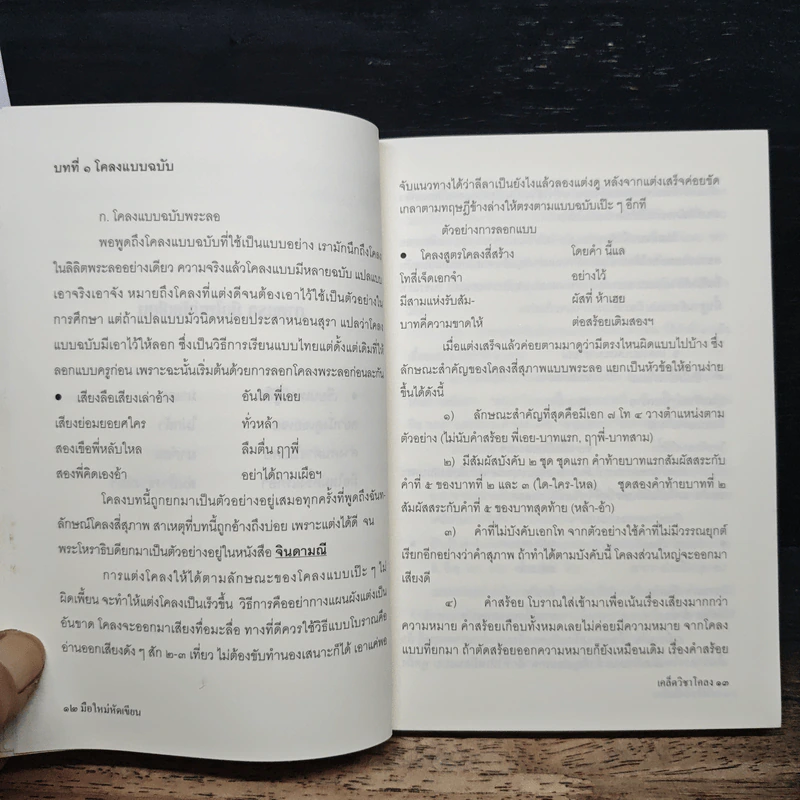 บทที่ ๑ โคลงแบบฉบับ
ก. โคลงแบบฉบับพระลอ
พอพูดถึงโคลงแบบฉบับที่ใช้เป็นแบบอย่าง เรามักนึกถึงโคลง
ในลิลิตพระลออย่างเดียว ความจริงแล้วโคลงแบบมีหลายฉบับ แปลแบบ
เอาจริงเอาจัง หมายถึงโคลงที่แต่งดีจนต้องเอาไว้ใช้เป็นตัวอย่างใน
การศึกษา แต่ถ้าแปลแบบมั่วนิดหน่อยประสาหนอนสุรา แปลว่าโคลง
แบบฉบับมีเอาไว้ให้ลอก ซึ่งเป็นวิธีการเรียนแบบไทยแต่ตั้งแต่เดิมที่ให้
ลอกแบบครูก่อน เพราะฉะนั้นเริ่มต้นด้วยการลอกโคลงพระลอก่อนละกัน
● เสียงลือเสียงเล่าอ้าง อันใด พี่เอย
เสียงย่อมยอยศใคร ทั่วหล้า
สองเขือพี่หลับใหล ลืมตื่น ฤๅพี่
สองพี่คิดเองอ้า อย่าได้ถามเผือฯ
โคลงบทนี้ถูกยกมาเป็นตัวอย่างอยู่เสมอทุกครั้งที่พูดถึงฉันท-
ลักษณ์โคลงสี่สุภาพ สาเหตุที่บทนี้ถูกอ้างถึงบ่อย เพราะแต่งได้ดี จน
พระโหราธิบดียกมาเป็นตัวอย่างอยู่ในหนังสือ จินดามณี
การแต่งโคลงให้ได้ตามลักษณะของโคลงแบบเป๊ะ ๆ ไม่
ผิดเพี้ยน จะทำให้แต่งโคลงเป็นเร็วขึ้น วิธีการคืออย่ากางแผนผังแต่งเป็น
อันขาด โคลงจะออกมาเสียงทื่อมะลื่อ ทางที่ดีควรใช้วิธีแบบโบราณคือ
อ่านออกเสียงดัง ๆ สัก ๒-๓ เที่ยว ไม่ต้องขับทำนองเสนาะก็ได้ เอาแค่พอ
๑๒ มือใหม่หัดเขียน
จับแนวทางได้ว่าลีลาเป็นยังไงแล้วลองแต่งดู หลังจากแต่งเสร็จค่อยขัด
เกลาตามทฤษฎีข้างล่างให้ตรงตามแบบฉบับเป๊ะ ๆ อีกที
ตัวอย่างการลอกแบบ
● โคลงสูตรโคลงสี่สร้าง โดยคำ นี้แล
โทสี่เจ็ดเอกจำ อย่างไว้
มีสามแห่งรับสัม- ผัสที่ ห้าเฮย
บาทที่ความขาดให้ ต่อสร้อยเติมสองฯ
เมื่อแต่งเสร็จแล้วค่อยตามมาดูว่ามีตรงไหนผิดแบบไปบ้าง ซึ่ง
ลักษณะสำคัญของโคลงสี่สุภาพแบบพระลอ แยกเป็นหัวข้อให้อ่านง่าย
ขึ้นได้ดังนี้
๑) ลักษณะสำคัญที่สุดคือมีเอก ๗ โท ๔ วางตำแหน่งตาม
ตัวอย่าง (ไม่นับคำสร้อย พี่เอย-บาทแรก, ฤๅพี่-บาทสาม)
๒) มีสัมผัสบังคับ ๒ ชุด ชุดแรก คำท้ายบาทแรกสัมผัสสระกับ
คำที่ ๕ ของบาทที่ ๒ และ ๓ (ใด-ใคร-ไหล) ชุดสองคำท้ายบาทที่ ๒
สัมผัสสระกับคำที่ ๕ ของบาทสุดท้าย (หล้า-อ้า)
๓) คำที่ไม่บังคับเอกโท จากตัวอย่างใช้คำที่ไม่มีวรรณยุกต์
เรียกอีกอย่างว่าคำสุภาพ ถ้าทำได้ตามบังคับนี้ โคลงส่วนใหญ่จะออกมา
เสียงดี
๔) คำสร้อย โบราณใส่เข้ามาเพื่อเน้นเรื่องเสียงมากกว่า
ความหมาย คำสร้อยเกือบทั้งหมดเลยไม่ค่อยมีความหมาย จากโคลง
แบบที่ยกมา ถ้าตัดสร้อยออกความหมายก็ยังเหมือนเดิม เรื่องคำสร้อย
เคล็ดวิชาโคลง ๑๓